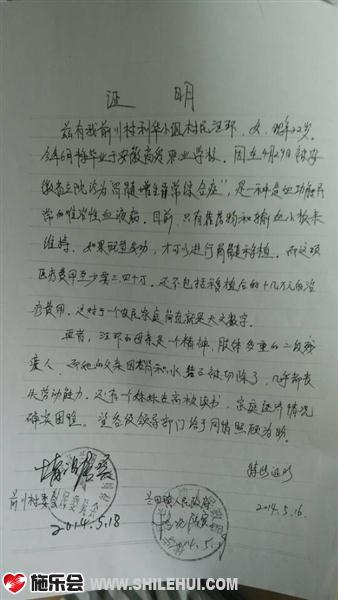 证 明
兹有我前川村利华小组村民汪环，女，现年22岁。
今年6月毕业于安徽商贸职业学校。因在4月29日被安
徽省立医院诊为"骨髓增生异常综合症"，是一种造血功能异
常的难治性血液病。目前，只有靠药物和输血小板来
维持。如果配型成功，才可以进行骨髓移植。而这项
医疗费用至少要三、四十万。还不包括移植后的十几万元的治
疗费用。这对于一个农民家庭简直就是天文数字。
并且，汪环的母亲是一个精神、肢体多重的二级残
疾人。而她的父亲因肾积水 已被切除了，几乎都丧
失劳动能力。还有个妹妹在高校读书，家庭经济情况
确实困难。望各级领导部门给予同情照顾为盼。
特此证明
情况属实
前川村委会
2014.5.18
兰田镇人民政府
情况属实
2014.5.16
施乐会 WWW.SHILEHUI.COM